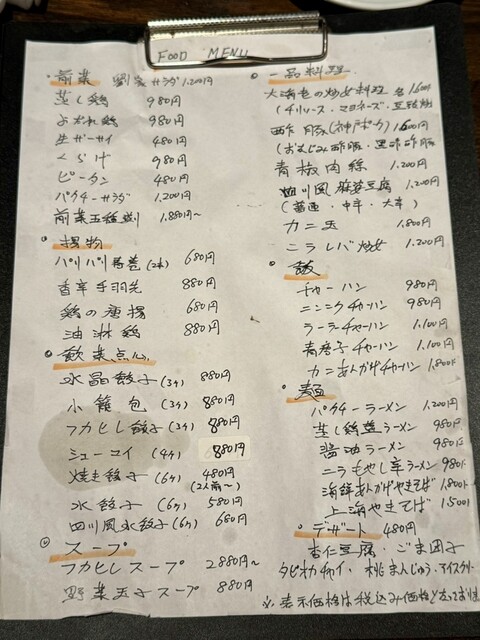 FOOD MENU
・前菜 サラダ 1,200円
蒸し鶏 980円
よだれ鶏 980円
生ザーサイ 480円
くらげ 980円
ピータン 480円
パクチーサラダ 1,200円
前菜五種盛 1,880円〜
・揚物
パリパリ春巻(2本) 680円
香辛手羽先 880円
鶏の唐揚 680円
油淋鶏 880円
・飲茶点心
水晶餃子(3ケ) 880円
小籠包(3ケ) 880円
フカヒレ餃子(3ケ) 880円
シューマイ(4ケ) 880円
焼き餃子(6ケ) 480円
(2人前〜)
水餃子(6ケ) 580円
四川風水餃子(6ケ) 680円
スープ
フカヒレスープ 2,880円〜
野菜玉子スープ 880円
・一品料理
大海老の炒め料理 各1,600
(チリソース・マヨネーズ・豆鼓炒)
酢豚(神戸ポーク) 1,600円
(おなじみ酢豚・黒酢酢豚)
青椒肉絲 1,200円
四川風麻婆豆腐 1,200円
(普通・中辛・大辛)
カニ玉 1,800円
ニラレバ炒め 1,200円
・飯
チャーハン 980円
ニンニクチャーハン 980円
ラーラーチャーハン 1,100円
青唐子チャーハン 1,100円
カニあんかけチャーハン 1,800
・麺
パクチーラーメン 1,200円
蒸し鶏葱ラーメン 980円
醤油ラーメン 980円
ニラもやし辛ラーメン 980
海鮮あんかけやきそば 1,800
上海やきそば 1,500
・デザート 480円
杏仁豆腐・ごま団子
タピオカチャイ・桃まんじゅう・アイスクリーム
※表示価格は税込み価格となっており